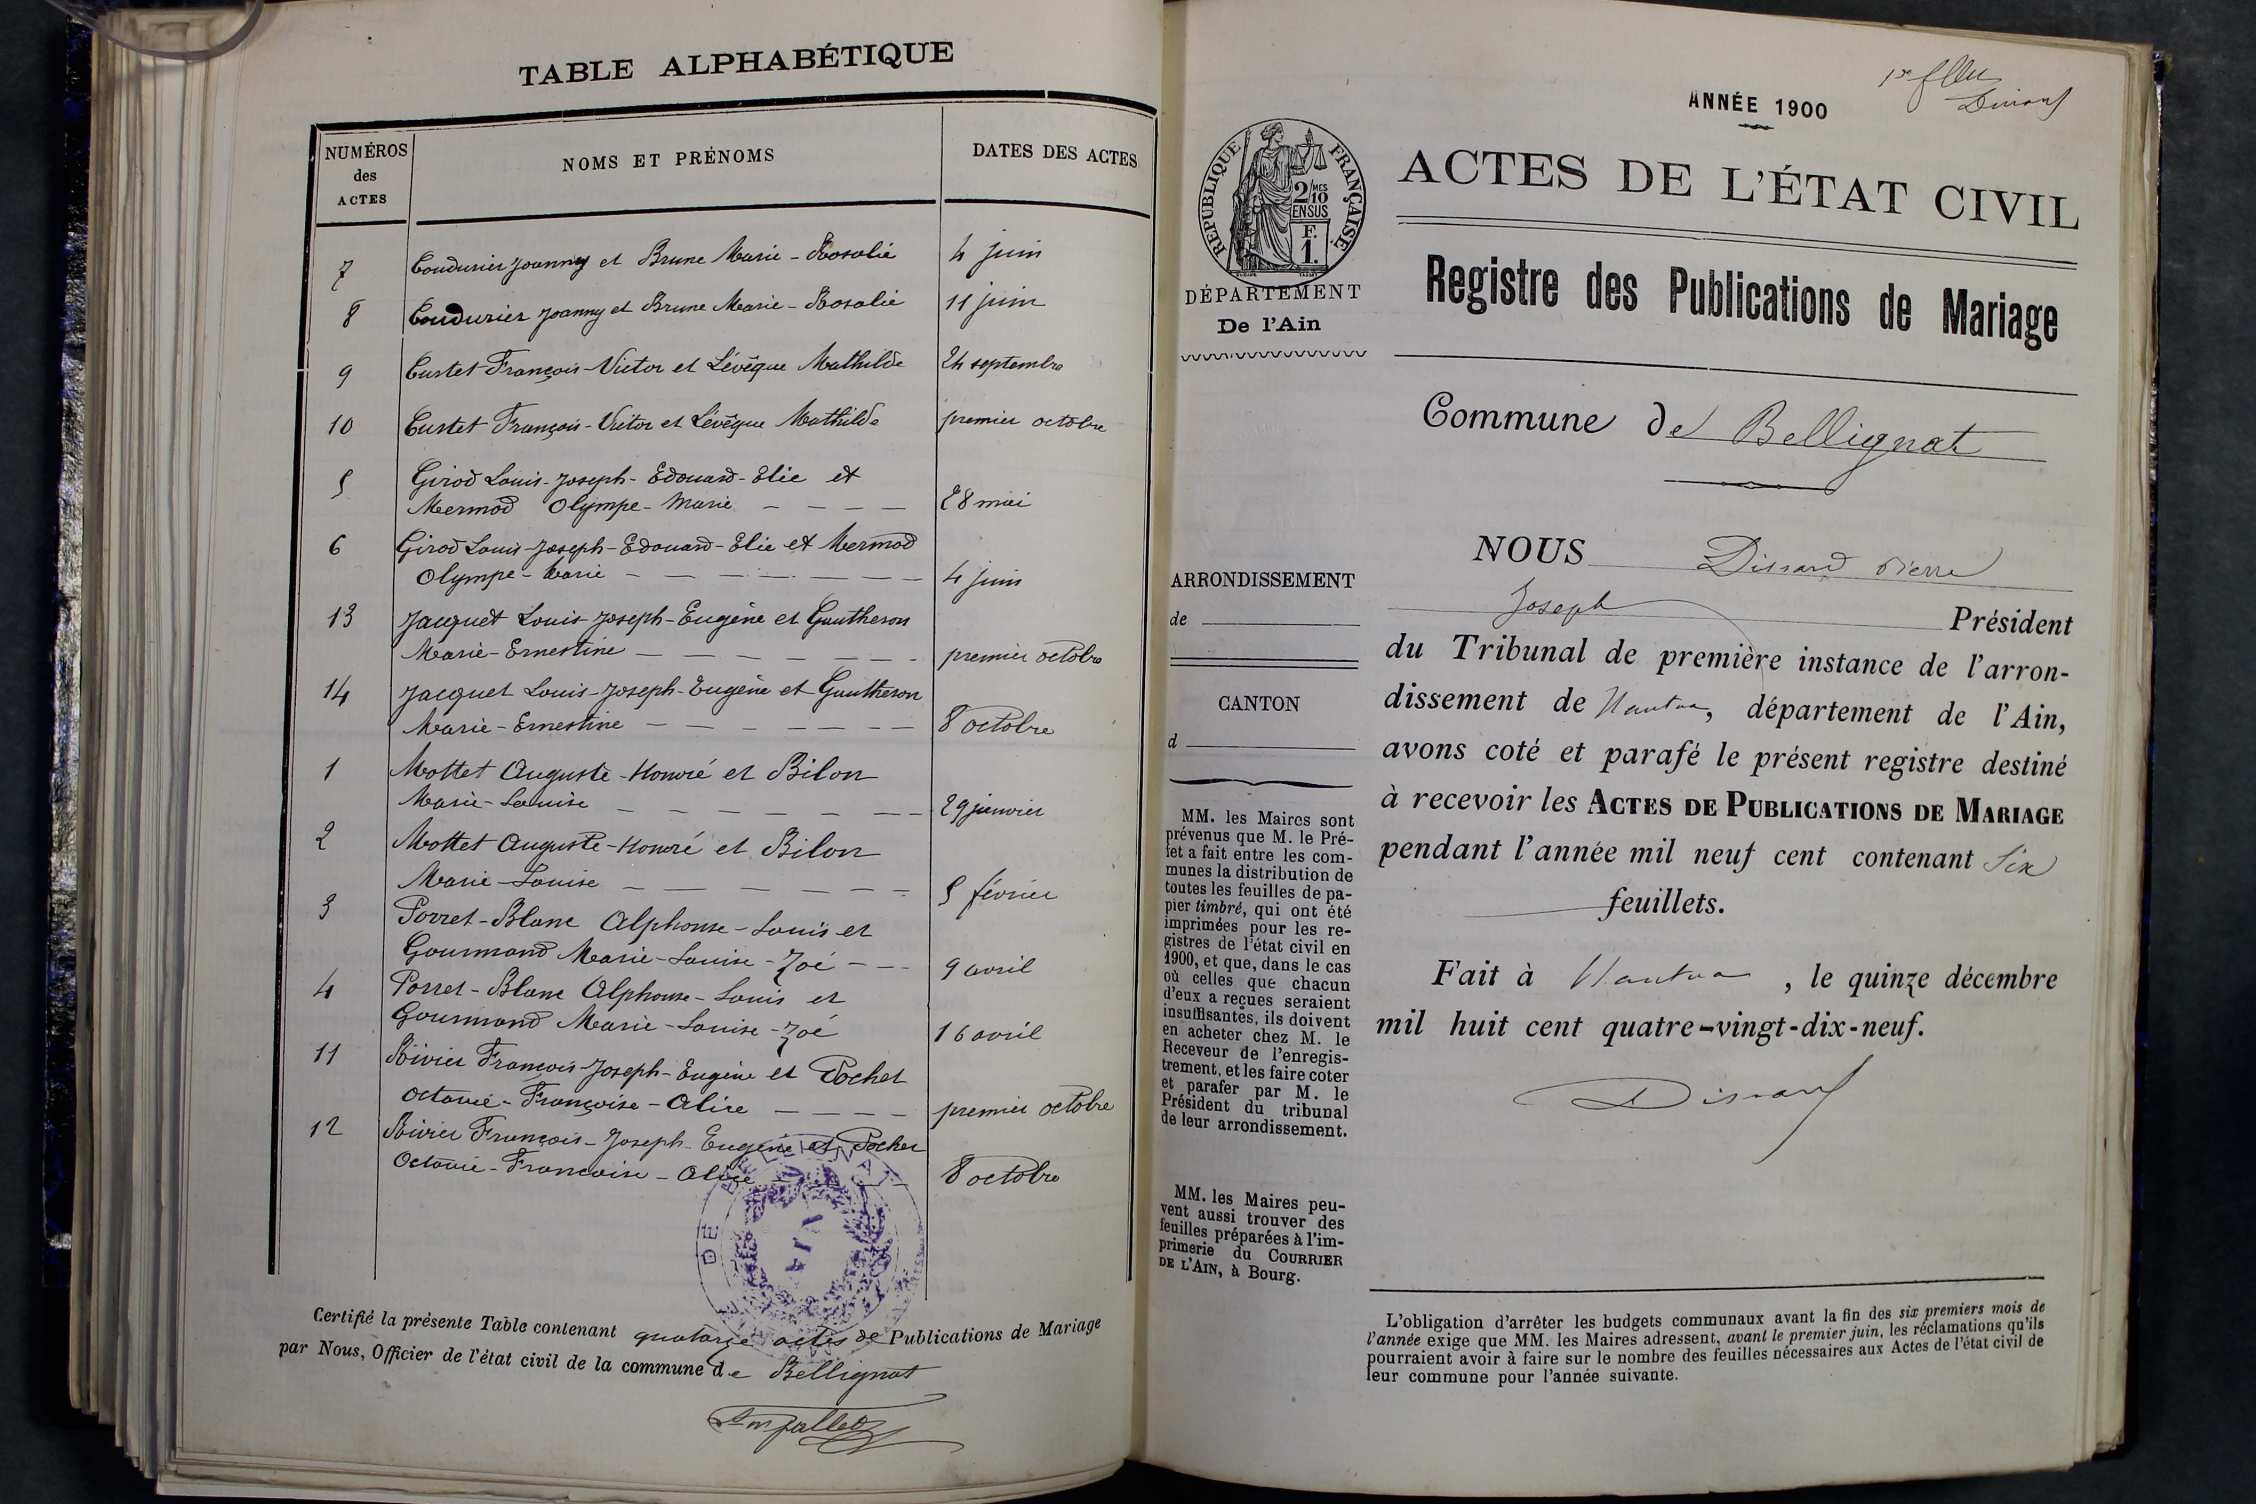 TABLE ALPHABÉTIQUE
NUMÉROS
des
ACTES
NOMS ET PRÉNOMS
DATES DES ACTES
7 Coudurier Joanny et Brune Marie-Rosalie 4 juin
8 Coudurier Joanny et Brune Marie-Rosalie 11 juin
9 Custet François-Victor et Lévêque Mathilde 24 septembre
10 Custet François-Victor et Lévêque Mathilde premier octobre
5 Girod Louis-Joseph-Edouard-Elie et
Mermod Olympe-Marie - - - - 28 mai
6 Girod Louis-Joseph-Edouard-Elie et Mermod
Olympe-Marie - - - - - - - 4 juin
13 Jacquet Louis-Joseph-Eugène et Gautheron
Marie-Ernestine - - - - - - - premier octobre
14 Jacquet Louis-Joseph-Eugène et Gautheron
Marie-Ernestine - - - - - - - 8 octobre
1 Mottet Auguste-Honoré et Bilon
Marie-Louise - - - - - - - 29 janvier
2 Mottet Auguste-Honoré et Bilon
Marie-Louise - - - - - - 5 février
3 Porret-Blanc Alphonse-Louis et
Gourmand Marie-Louise-Zoé - - 9 avril
4 Porret-Blanc Alphonse-Louis et
Gourmand Marie-Louise-Zoé 16 avril
11 Rivier François-Joseph-Eugène et Pochet
Octavie-Françoise-Alice - - - - premier octobre
12 Rivier François-Joseph-Eugène et Pochet
Octavie-Françoise-Alice - - - 8 octobre
Certifié la présente Table contenant quatorze actes de Publications de Mariage
par Nous, Officier de l'état civil de la commune de Bellignat
ANNÉE 1900
Dissard
RÉPUBLIQUE FRANÇAISE
2/MES
10
EN SUS
F.
1.
DÉPARTEMENT
De l'Ain
ACTES DE L'ÉTAT CIVIL
Registre des Publications de Mariage
Commune de Bellignat
ARRONDISSEMENT
de
CANTON
d
MM. les Maires sont
prévenus que M. le Pré-
fet a fait entre les com-
munes la distribution de
toutes les feuilles de pa-
pier timbré, qui ont été
imprimées pour les re-
gistres de l'état civil en
1900, et que, dans le cas
où celles que chacun
d'eux a reçues seraient
insuffisantes, ils doivent
en acheter chez M. le
Receveur de l'enregis-
trement, et les faire coter
et parafer par M. le
Président du tribunal
de leur arrondissement.
MM. les Maires peu-
vent aussi trouver des
feuilles préparées à l'im-
primerie du COURRIER
DE L'AIN, à Bourg.
NOUS Dissard Pierre
Joseph Président
du Tribunal de première instance de l'arron-
dissement de Nantua, département de l'Ain,
avons coté et parafé le présent registre destiné
à recevoir les ACTES DE PUBLICATIONS DE MARIAGE
pendant l'année mil neuf cent contenant six
feuillets.
Fait à Nantua, le quinze décembre
mil huit cent quatre-vingt-dix-neuf.
Dissard
L'obligation d'arrêter les budgets communaux avant la fin des six premiers mois de
l'année exige que MM. les Maires adressent, avant le premier juin, les réclamations qu'ils
pourraient avoir à faire sur le nombre des feuilles nécessaires aux Actes de l'état civil de
leur commune pour l'année suivante.